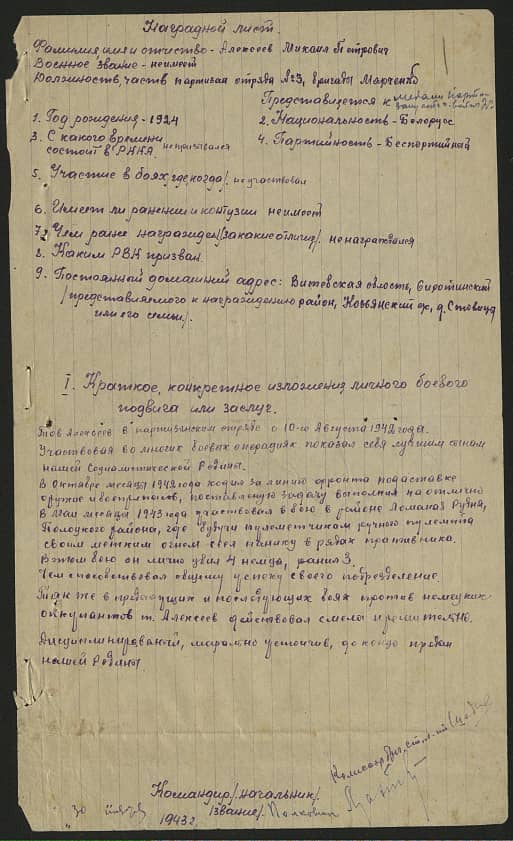 Наградной лист.
Фамилия имя и отчество - Алексеев Михаил Петрович
Военное звание - неимеет
Должность, часть партизан отряда №3, бригады Марченко
Представляется к медали
1. Год рождения - 1924
2. Национальность - Белорус
3. С какого времени
состоит в РККА непризывался
4. Партийность - Беспортийный
5. Участие в боях, где, когда/. неучаствовал
6. Имеет ли ранения и контузии неимеет
7. Чем ранее награжден/за какие отличия/. ненаграждался
8. Каким РВК призван.
9. Постоянный домашний адрес: Витебская область, Сиротинский
/представляемого к награждению район, с/с, д.
или его семьи/.
I. Краткое, конкретное изложения личного боевого
подвига или заслуг.
Тов Алексеев в партизанском отряде с 10-го Августа 1942 года.
Участвовая во многих боевых операциях показал себя лучшим сынам
нашей Социалистической Родины.
В Октябре месяце 1942 года ходил за линию фронта подаставке
оружие и боеприпасов, поставленую задачу выполнил на отлично
В Мае месяце 1943 года участвовая в бою в районе Ломаная Рудня,
Полоцкого района, где будучи пулеметчикам ручного пулемета
своим метким огнем сеял панику в рядах противника.
В этом бою он лично убил 4 немца, ранил 3.
Чем способствовал общему успеху своего подразделение.
Также в предыдущих и последующих боях против немецких
оккупантов т. Алексеев действовал смело и решительно.
Дисциплинированый, морально устойчив, до конца предан
нашей Родины.
Командир/начальник/
/звание/. Полковник
30
1943 г.